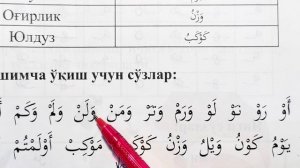 Оғирлик وَزْنُ
Юлдуз كَوْكَبُ
шимча ўқиш учун сўзлар:
أَوْ رَوْ نَوْ لَوْ وَرَمْ وَتَرْ وَمَنْ وَلَنْ وَلَمْ وَكَمْ
يَوْمُ كَوْنُ وَيْلُ وَزْنُ كَوْكَبُ مَوْكِبُ أَوْلَمْتُمْ